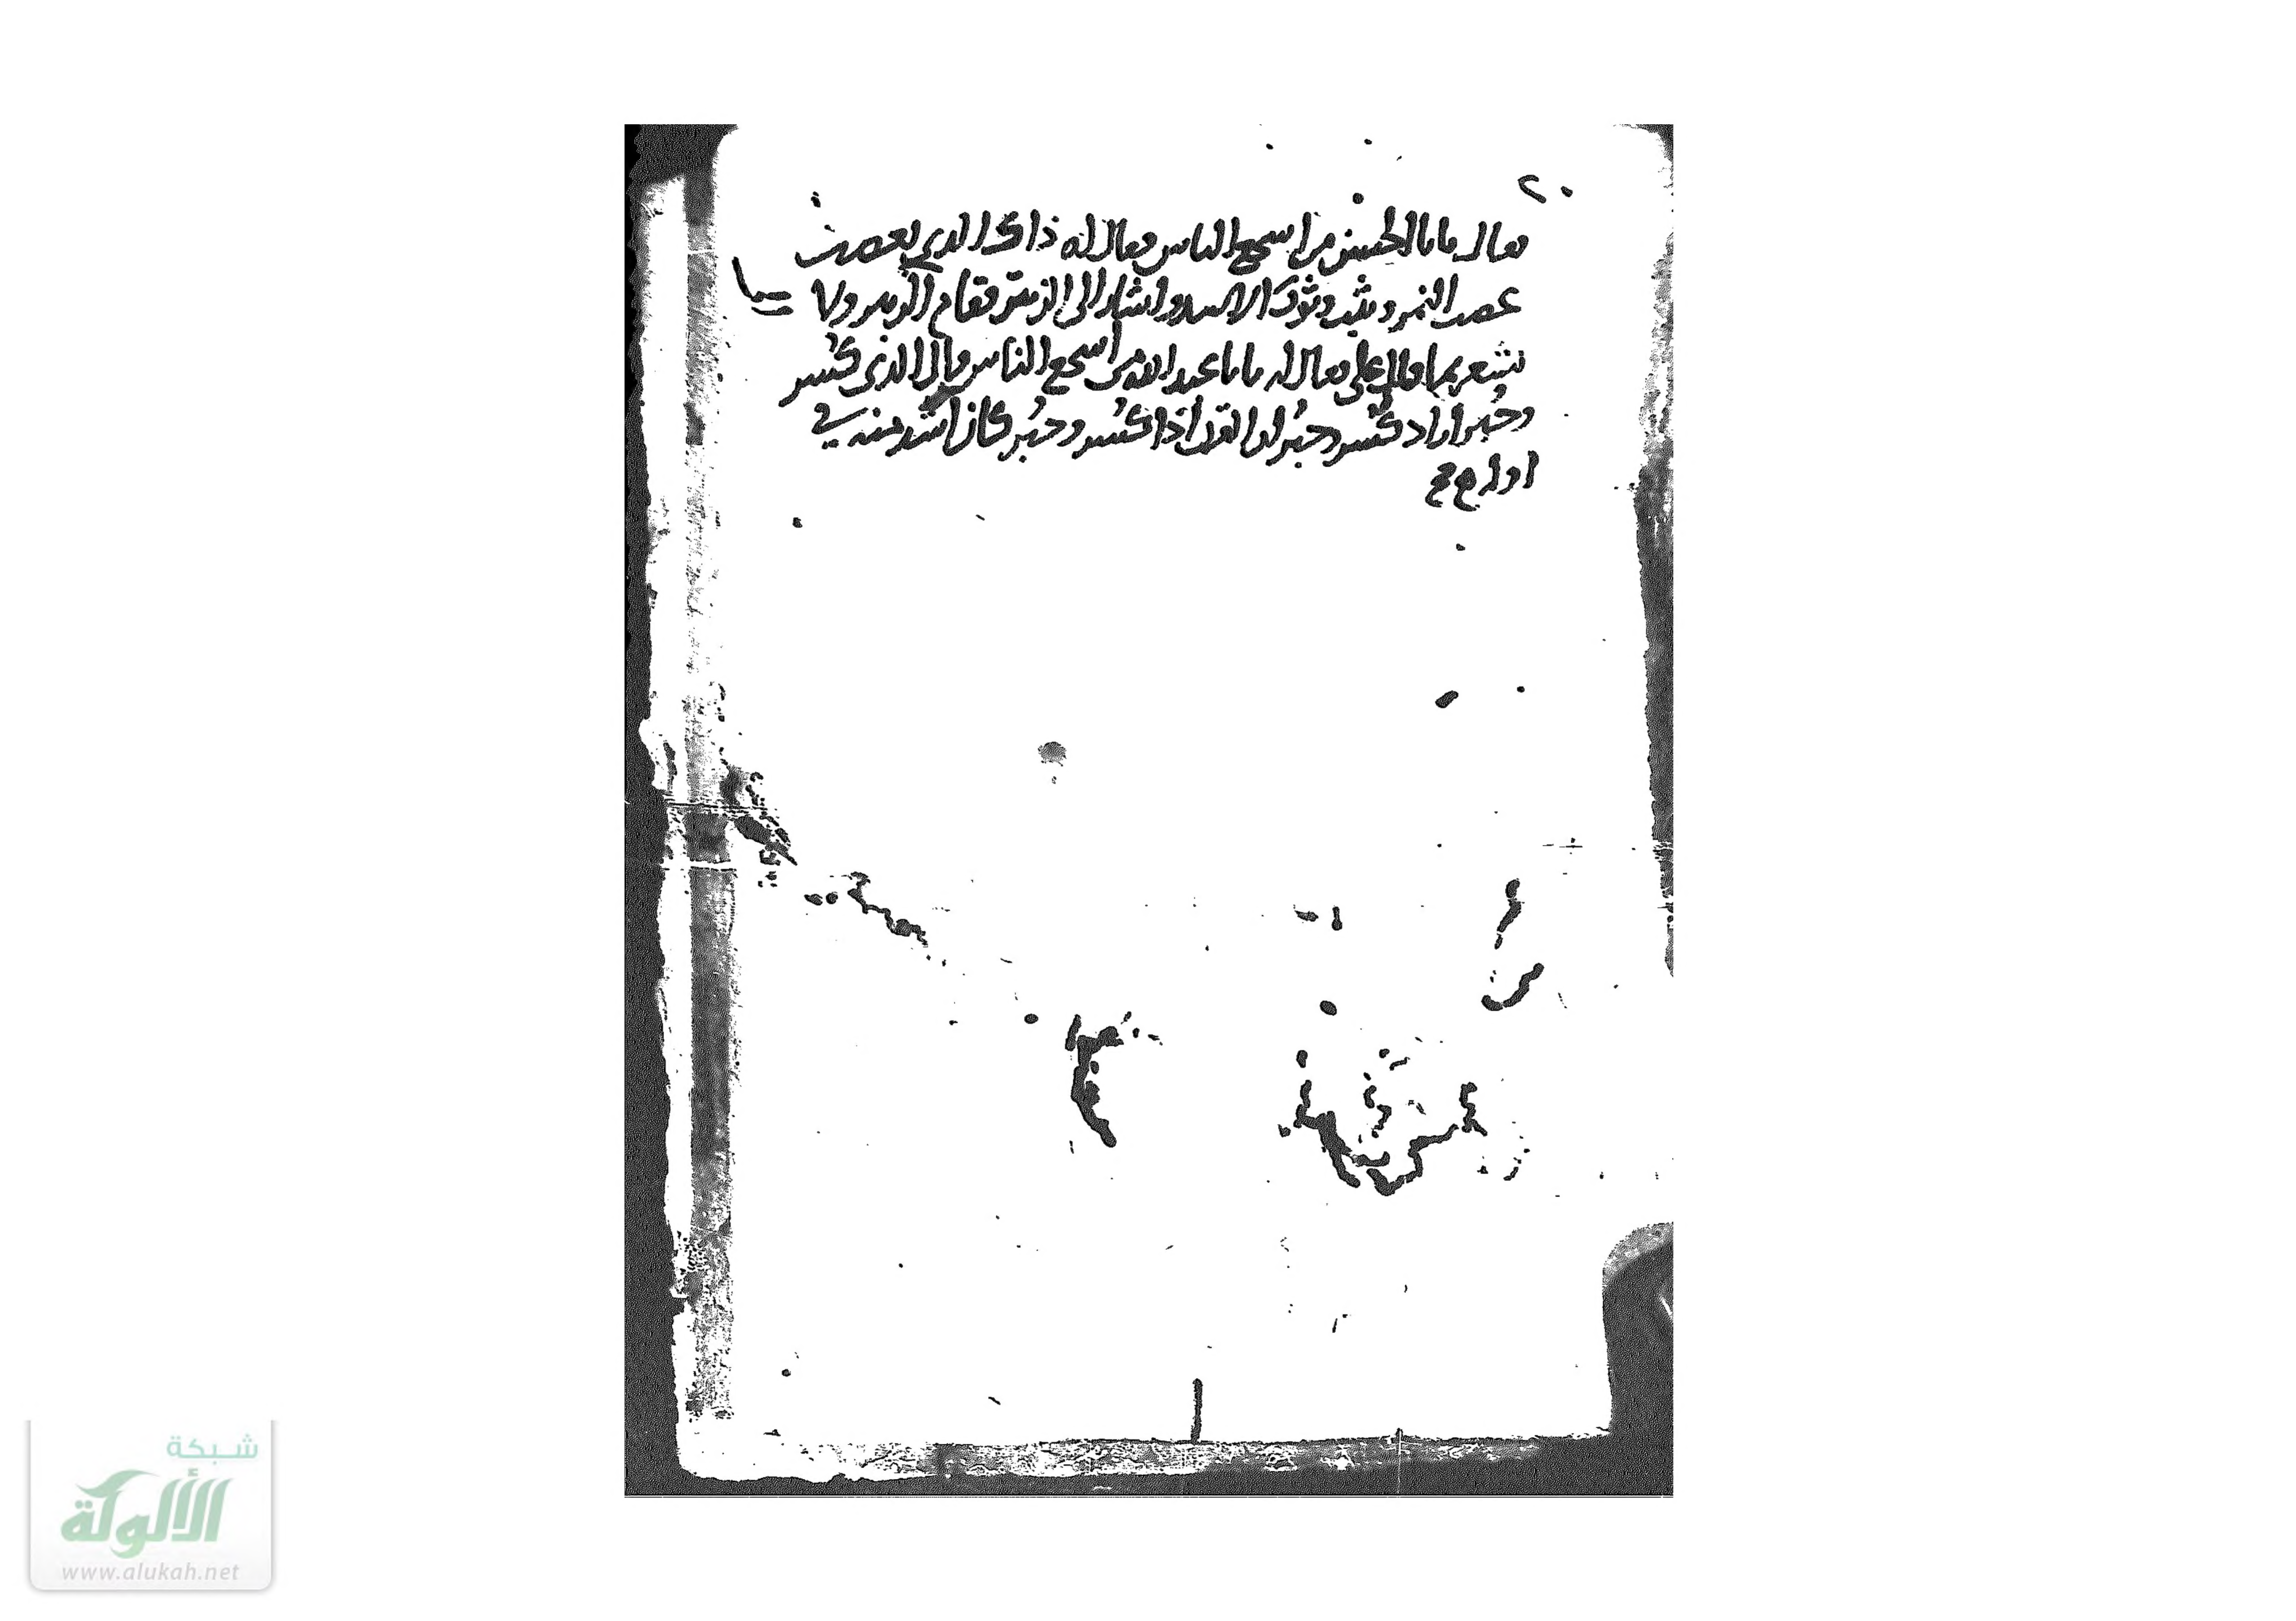 ٢٠
فقال يا با الحسن من اسمع الناس فقال له ذاك الذي يغضب
غضب النمر ويثب وثوب الاسد واشار الى الزبير فقام الزبير ولا
نشعر بما قال علي فقال له يا با عبد الله من اسمع الناس قال الذي كسر
وجبر اراد كسر وجبر لان القرن اذا كسر وجبر كان اشد منه في
اوله
شبكة
الألوكة
www.alukah.net